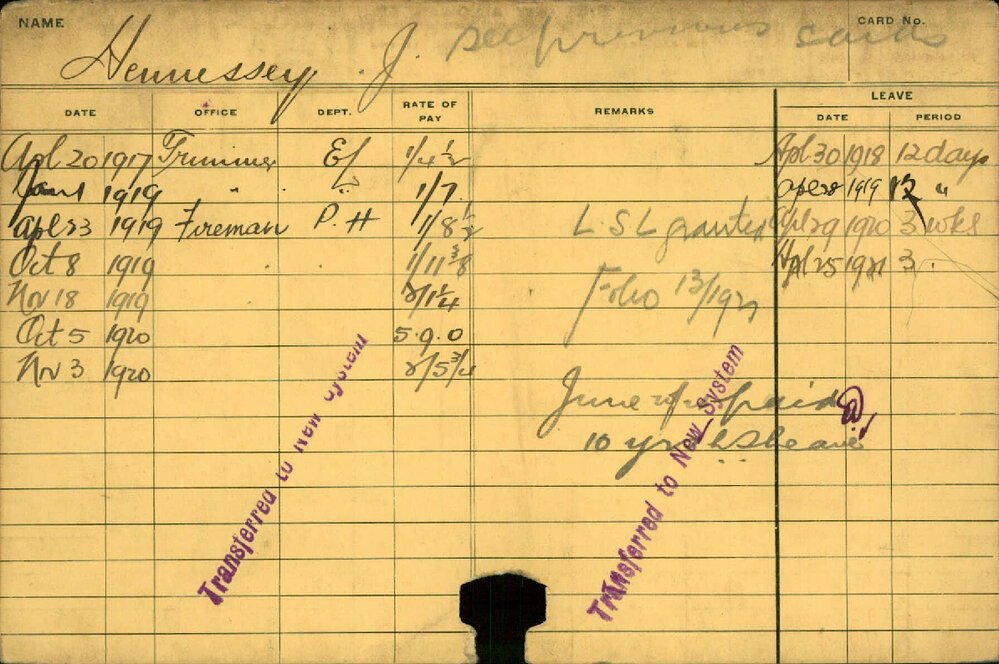 NAME
CARD No.
Hennessey J. see previous cards
LEAVE
DATE OFFICE DEPT. RATE OF PAY REMARKS DATE PERIOD
Apl 20 1917 Trimmer 1/4½ Apl 30 1918 12 days
Jan 1 1919 " " 1/7 Apl 28 1919 12 "
Apl 23 1919 Fireman P. H 1/8½ L S L granted Apl 29 1920 3 wks
Oct 8 1919 1/11⅜ Apl 25 1921 3 "
Nov 18 1919 2/1¼ Folio 13/1921
Oct 5 1920 5.9.0
Nov 3 1920 2/5¾
June paid
10 yr L S leave
Transferred to New System
Transferred to New System